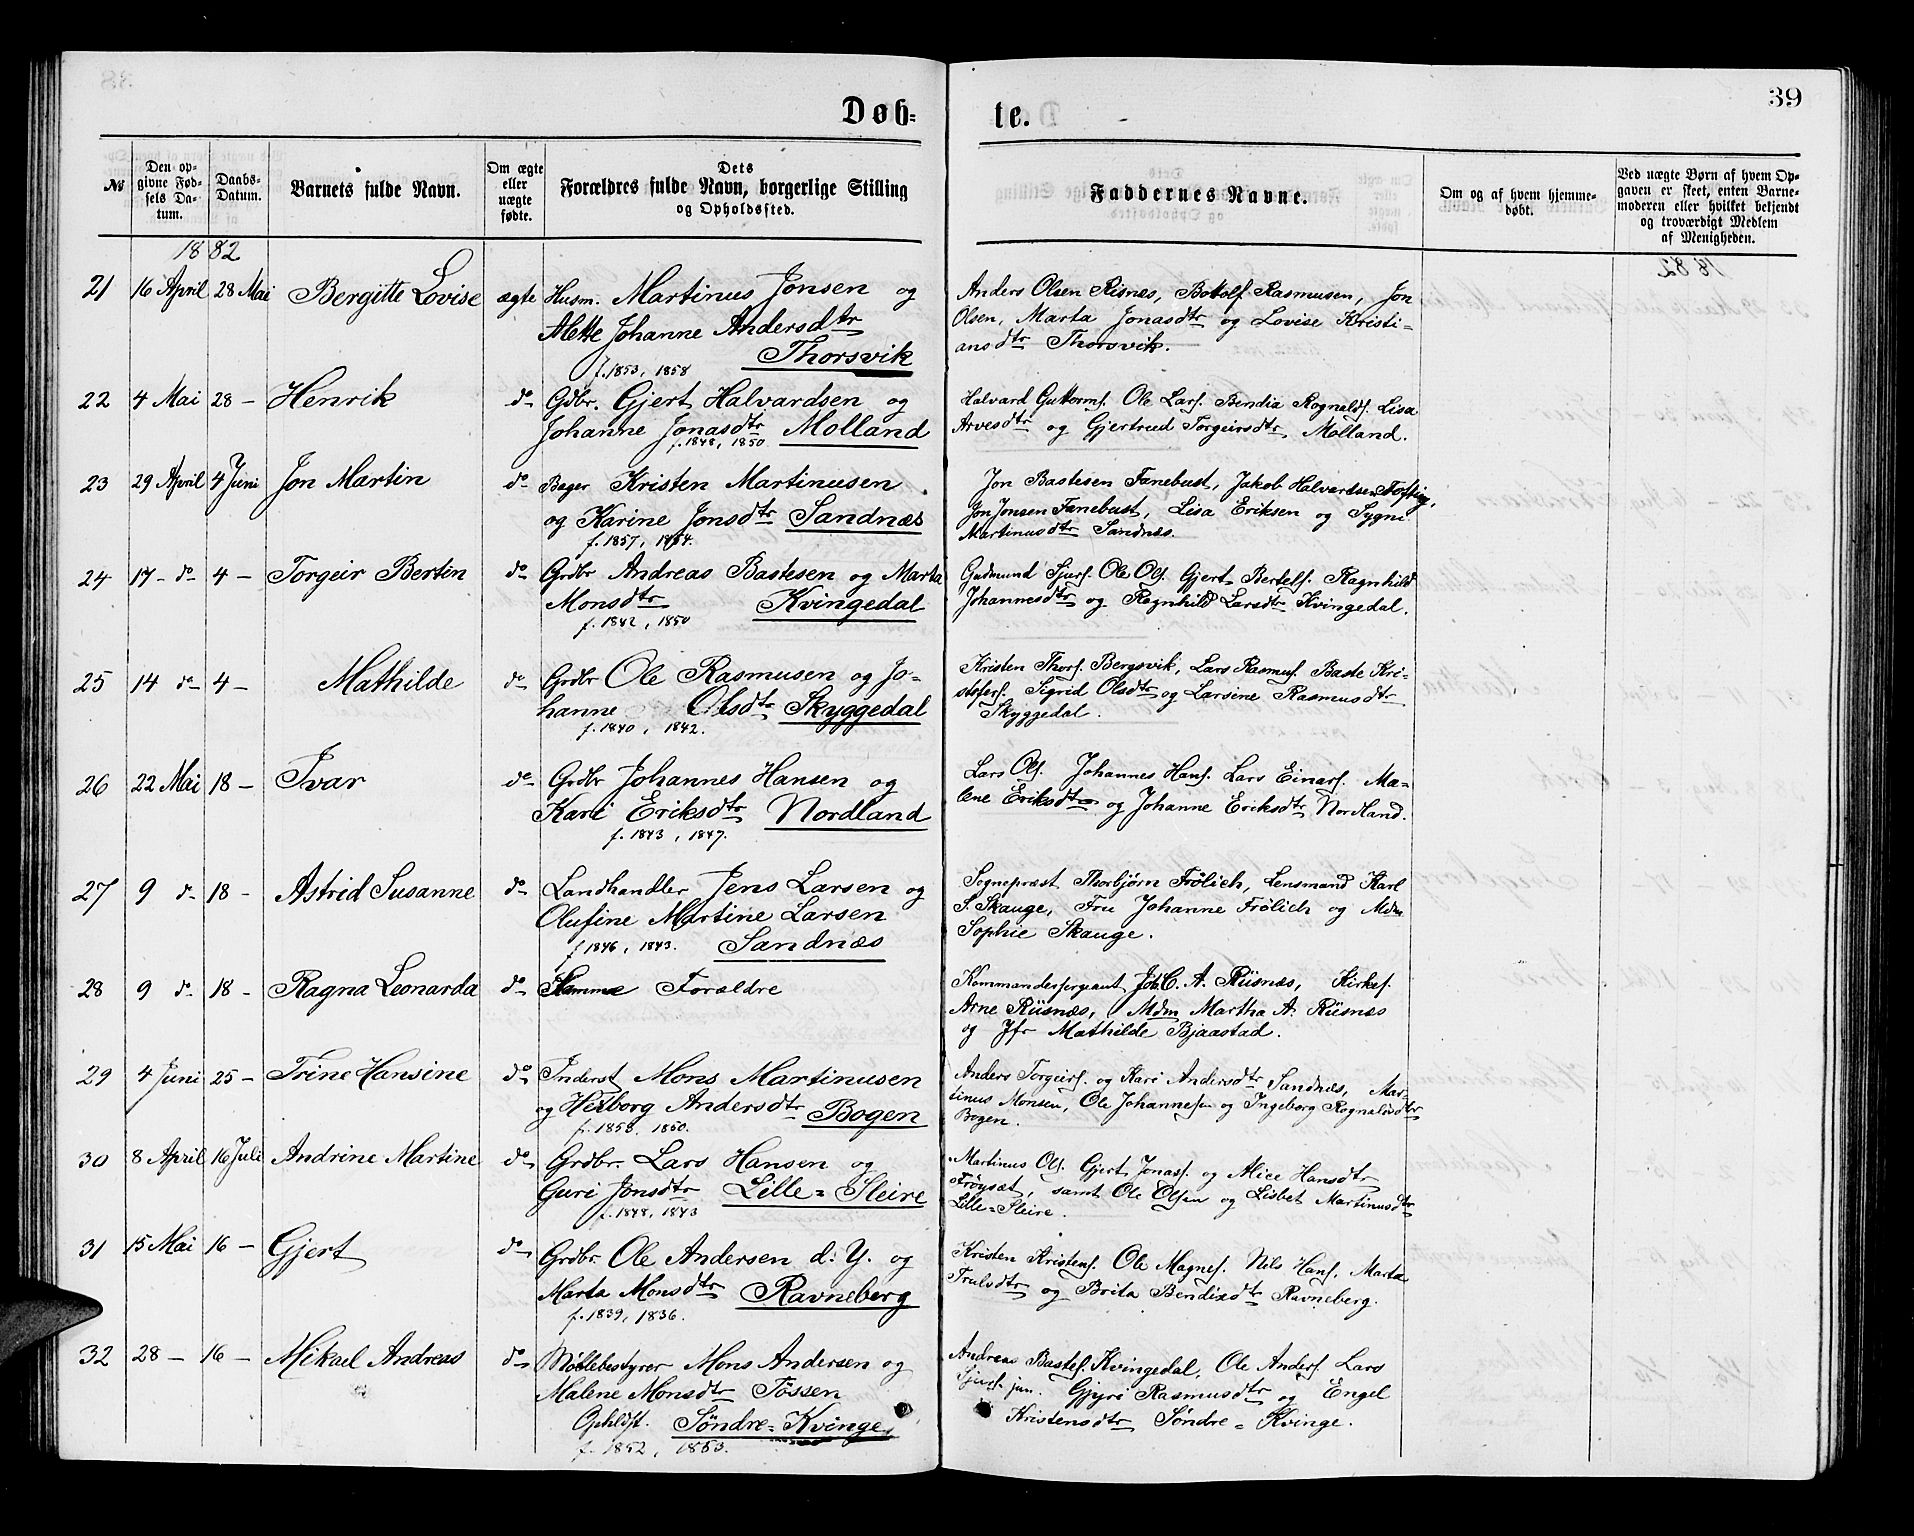 39
Døb=
te.
№
Den op-
givne Fød-
sels Da-
tum.
Daabs-
Datum.
Barnets fulde Navn.
Om ægte
eller
uægte
fødte.
Dets
Forældres fulde Navn, borgerlige Stilling
og Opholdssted.
Faddernes Navne.
Om og af hvem hjemme-
døbt.
Ved uægte Børn af hvem Op-
gaven er skeet, enten Barne-
moderen eller hvilket bekjendt
og troværdigt Medlem
af Menigheden.
1882
21 16 April 28 Mai Bergitte Lovise ægte Husm. Martinus Jonsen og
Mette Johanne Andersdtr
Thorsvik
f. 1853, 1858
Anders Olsen Risnes, Bottolf Rasmusen, Jon
Olsen, Marta Jonasdtr og Lovise Kristi=
ansdtr Thorsvik.
22 4 Mai 28 – Henrik do Gdbr. Gjert Halvardsen og
Johanne Jonasdtr Molland
f. 1848, 1850
Halvard Guttorms. Ole Lars. Bendia Ragnalds. Lisa
Arvesdtr og Gjertrud Torgeirsdtr Molland.
23 29 April 4 Juni Jon Martin do Bager Kristen Martinusen
og Karine Jonsdtr Sandnæs
f. 1857, 1854.
Jon Bastesen Fanebust, Jakob Halvardsen Tofting,
Jon Jonsen Fanebust, Lisa Eriksen og Sygni
Martinusdtr Sandnæs.
24 17 – do 4 – Torgeir Bertin do Grdbr Andreas Bastesen og Marta
Monsdtr Kvingedal
f. 1842, 1850
Gudmund Sjurs. Ole Ols. Gjert Bertels. Ragnhild
Johannesdtr og Ragnhild Larsdtr Kvingedal.
25 14 do 4 – Mathilde do Grdbr Ole Rasmusen og Jo=
hanne Olsdtr Skyggedal
f. 1840, 1842.
Kristen Thors. Bergsvik, Lars Rasmus. Baste Kri=
stofers. Sigrid Olsdtr og Larsine Rasmusdtr
Skyggedal.
26 22 Mai 18 – Ivar do Grdbr Johannes Hansen og
Kari Eriksdtr Nordland
f. 1843, 1847.
Lars Ols. Johannes Hans. Lars Einars. Ma=
lene Eriksdtr og Johanne Eriksdtr Nordland.
27 9 do 18 – Astrid Susanne do Landhandler Jens Larsen og
Olufine Martine Larsen
f. 1846, 1843. Sandnæs
Sognepræst Thorbjørn Frölich, Lensmand Karl
S. Skauge, Fru Johanne Frölich og Mdm
Sophie Skauge.
28 9 do 18 – Ragna Leonarda do Samme Forældre
Kommandersergeant Joh. C. A. Riisnæs, Kirkes.
Arne Riisnæs, Mdm Martha A. Riisnæs
og Jfr Mathilde Bjaastad.
29 4 Juni 25 – Trine Hansine do Inderst Mons Martinusen
og Herborg Andersdtr Bogen
f. 1858. 1850.
Anders Torgeirs. og Kari Andersdtr Sandnæs, Mar=
tinus Monsen, Ole Johannesen og Ingeborg Ragnaldsdtr
Bogen.
30 8 April 16 Juli Andrine Martine do Grdbr. Lars Hansen og
Guri Jonsdtr Lille=Sleire
f. 1848, 1843
Martinus Ols. Gjert Jonass. og Alice Hansdtr
Frøyset, samt Ole Olsen og Lisbet Martinusdtr
Lille=Sleire.
31 15 Mai 16 – Gjert do Grdbr. Ole Andersen d. Y. og
Marta Monsdtr Ravneberg
f. 1839, 1836.
Kristen Kristens. Ole Magnes. Nils Hans. Marta
Trulsdtr og Brita Bendixdtr Ravneberg.
32 28 – 16 – Mikael Andreas do Møllebestyrer Mons Andersen og
Malene Monsdtr Tössen
Opholdst. Søndre=Kvinge
f. 1852, 1853.
Andreas Bastes. Kvingedal, Ole Anders. Lars
Sjurs. jun. Gjyri Rasmusdtr og Engel
Kristensdtr Søndre=Kvinge.